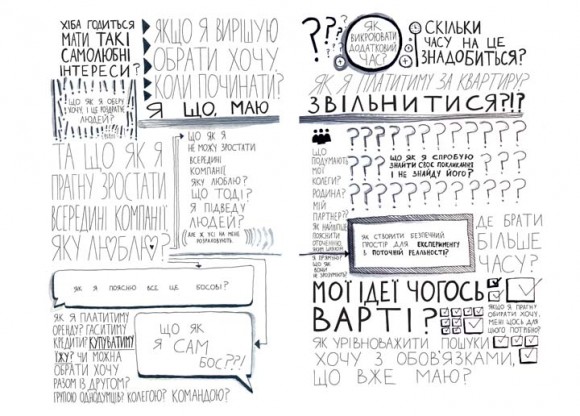 ХІБА ГОДИТЬСЯ
МАТИ ТАКІ
САМОЛЮБНІ
ІНТЕРЕСИ?
ЯКЩО Я ВИРІШУЮ
ОБРАТИ ХОЧУ,
КОЛИ ПОЧИНАТИ?
ЩО ЯК Я ОБЕРУ
ХОЧУ, І ЦЕ
ЛЮДЕЙ?
Я ЩО, МАЮ
ЗВІЛЬНИТИСЯ?!?
ТА ЩО ЯК Я
ПРАГНУ ЗРОСТАТИ
ВСЕРЕДИНІ КОМПАНІЇ,
ЯКУ ЛЮБЛЮ?
ЩО ЯК Я
НЕ МОЖУ ЗРОСТАТИ
ВСЕРЕДИНІ
КОМПАНІЇ,
ЯКУ ЛЮБЛЮ?
ЩО ТОДІ?
Я ПІДВЕДУ
ЛЮДЕЙ?
(АЖЕ Ж УСІ НА МЕНЕ
РОЗРАХОВУЮТЬ)
ЯК Я ПОЯСНЮ ВСЕ ЦЕ БОСОВІ?
ЯК Я ПЛАТИТИМУ
ОРЕНДУ? ГАСИТИМУ
КРЕДИТИ? КУПУВАТИМУ
ЇЖУ? ЧИ МОЖНА
ОБРАТИ ХОЧУ
РАЗОМ ІЗ ДРУГОМ?
ГРУПОЮ ОДНОДУМЦІВ? КОЛЕГОЮ? КОМАНДОЮ?
ЩО ЯК
Я САМ
БОС??!
???
ЯК
ВИКРОЮВАТИ
ДОДАТКОВИЙ
ЧАС?
СКІЛЬКИ
ЧАСУ НА ЦЕ
ЗНАДОБИТЬСЯ?
ЯК Я ПЛАТИТИМУ ЗА КВАРТИРУ?
ЩО
ПОДУМАЮТЬ
МОЇ
КОЛЕГИ?
РОДИНА?
МІЙ
ПАРТНЕР?
ЯК НАЙЛІПШЕ
ПОЯСНИТИ
ОТОЧЕННЮ,
ЯКИМ ШЛЯХОМ
Я ПРЯМУЮ?
ЩО ЯК
ВОНИ
НЕ ЗРОЗУМІЮТЬ?
ЩО ЯК Я СПРОБУЮ
ЗНАЙТИ СВОЄ ПОКЛИКАННЯ
І НЕ ЗНАЙДУ ЙОГО?
ЯК СТВОРИТИ БЕЗПЕЧНИЙ
ПРОСТІР ДЛЯ ЕКСПЕРИМЕНТУ
В ПОТОЧНІЙ РЕАЛЬНОСТІ?
ДЕ БРАТИ
БІЛЬШЕ
ЧАСУ?
МОЇ ІДЕЇ ЧОГОСЬ
ВАРТІ?
ЯКЩО Я ПРАГНУ
ОБИРАТИ ХОЧУ,
МЕНІ ЩОСЬ ДЛЯ
ЦЬОГО ПОТРІБНО?
ЯК УРІВНОВАЖИТИ ПОШУКИ
ХОЧУ З ОБОВ'ЯЗКАМИ,
ЩО ВЖЕ МАЮ?